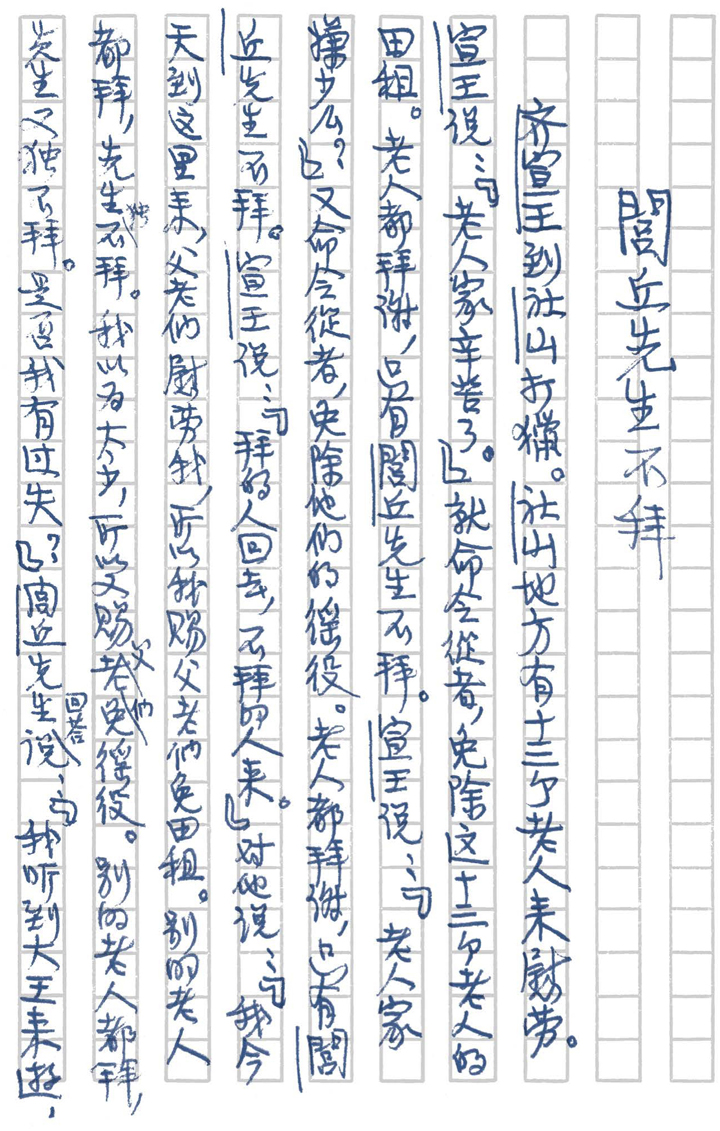 閭丘先生不拜
齐宣王到社山打獵。社山地方有十三个老人来慰劳。
宣王说:「老人家辛苦了。」就命令從者,免除这十三个老人的
田租。老人都拜谢,只有閭丘先生不拜。宣王说:「老人家
嫌少么?」又命令從者,免除他们的徭役。老人都拜谢,只有閭
丘先生不拜。宣王说:「拜的人回去,不拜的人来。」对他说:「我今
天到这里来,父老们慰劳我,所以我赐父老们免田租。别的老人
都拜,先生独不拜。我以为太少,所以又赐父老们免徭役。别的老人都拜,
先生又独不拜。是否我有过失?」閭丘先生回答说:「我听到大王来遊,